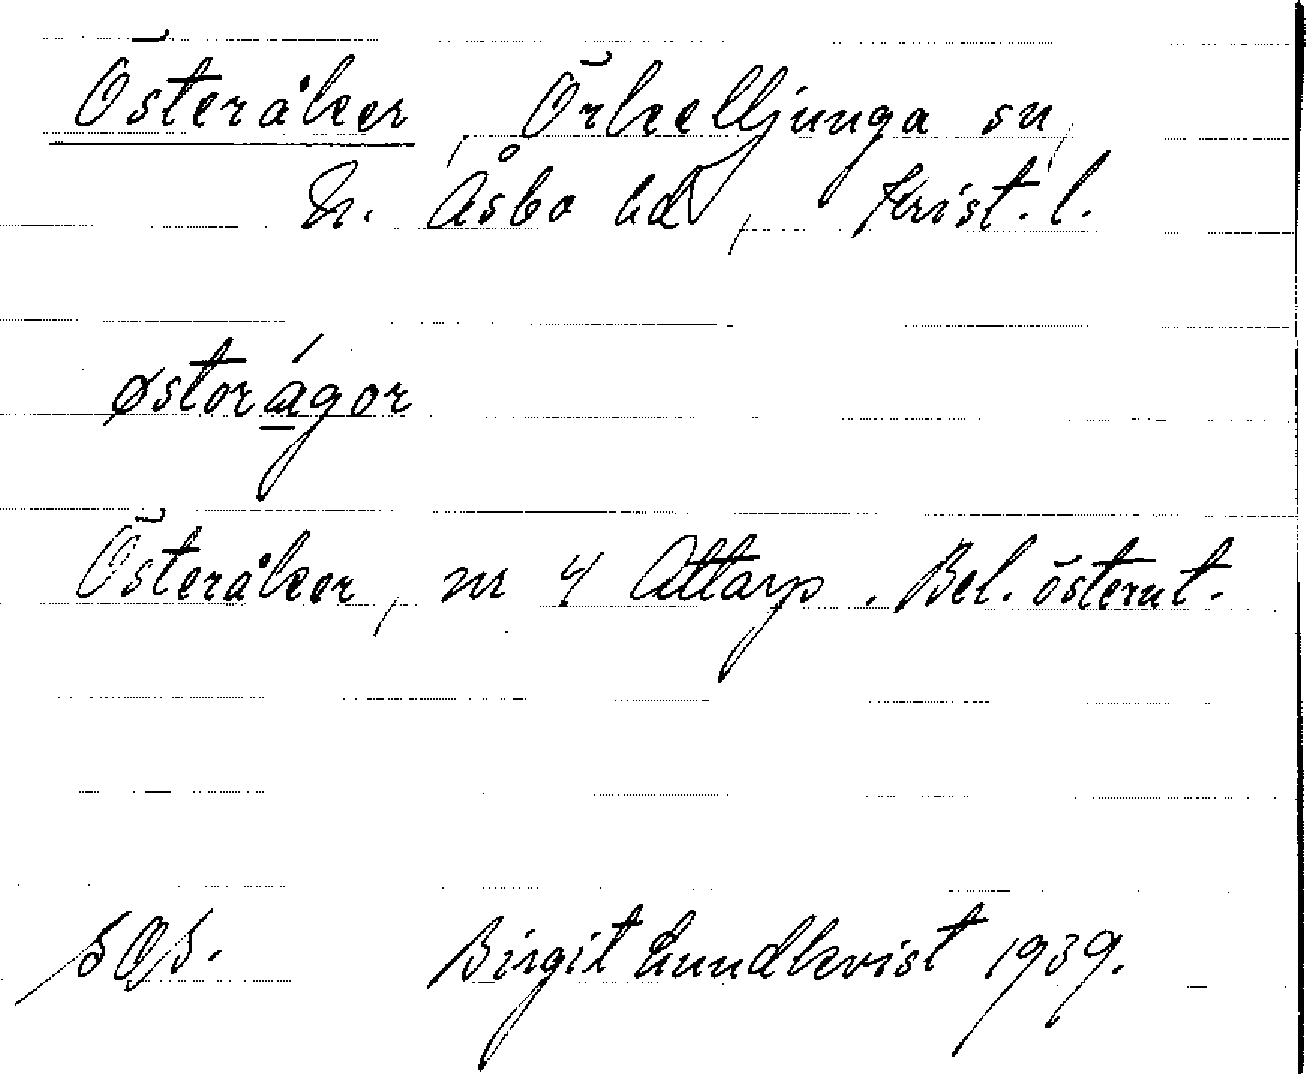 Österåker, Örkelljunga sn,
N. Åsbo hd, Krist. l.
østorágor
Österåker, nr 4 Attarp. Bel. österut.
SOS. Birgit Lundkvist 1939.